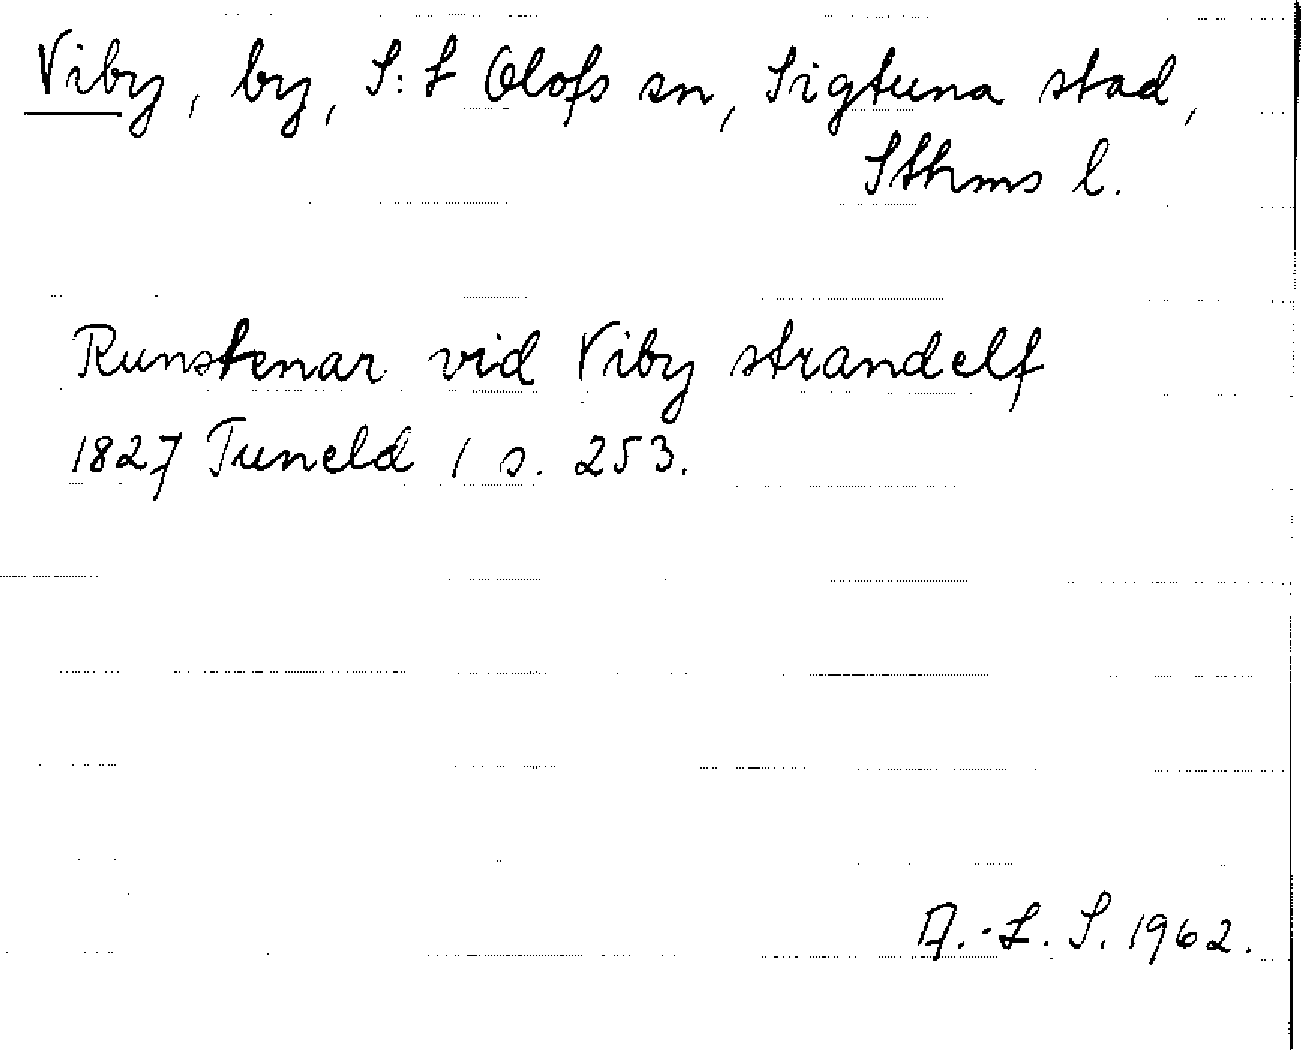 Viby, by, S:t Olofs sn, Sigtuna stad,
Sthms l.
Runstenar vid Viby strandelf
1827 Tuneld 1 s. 253.
A.-L. S. 1962.